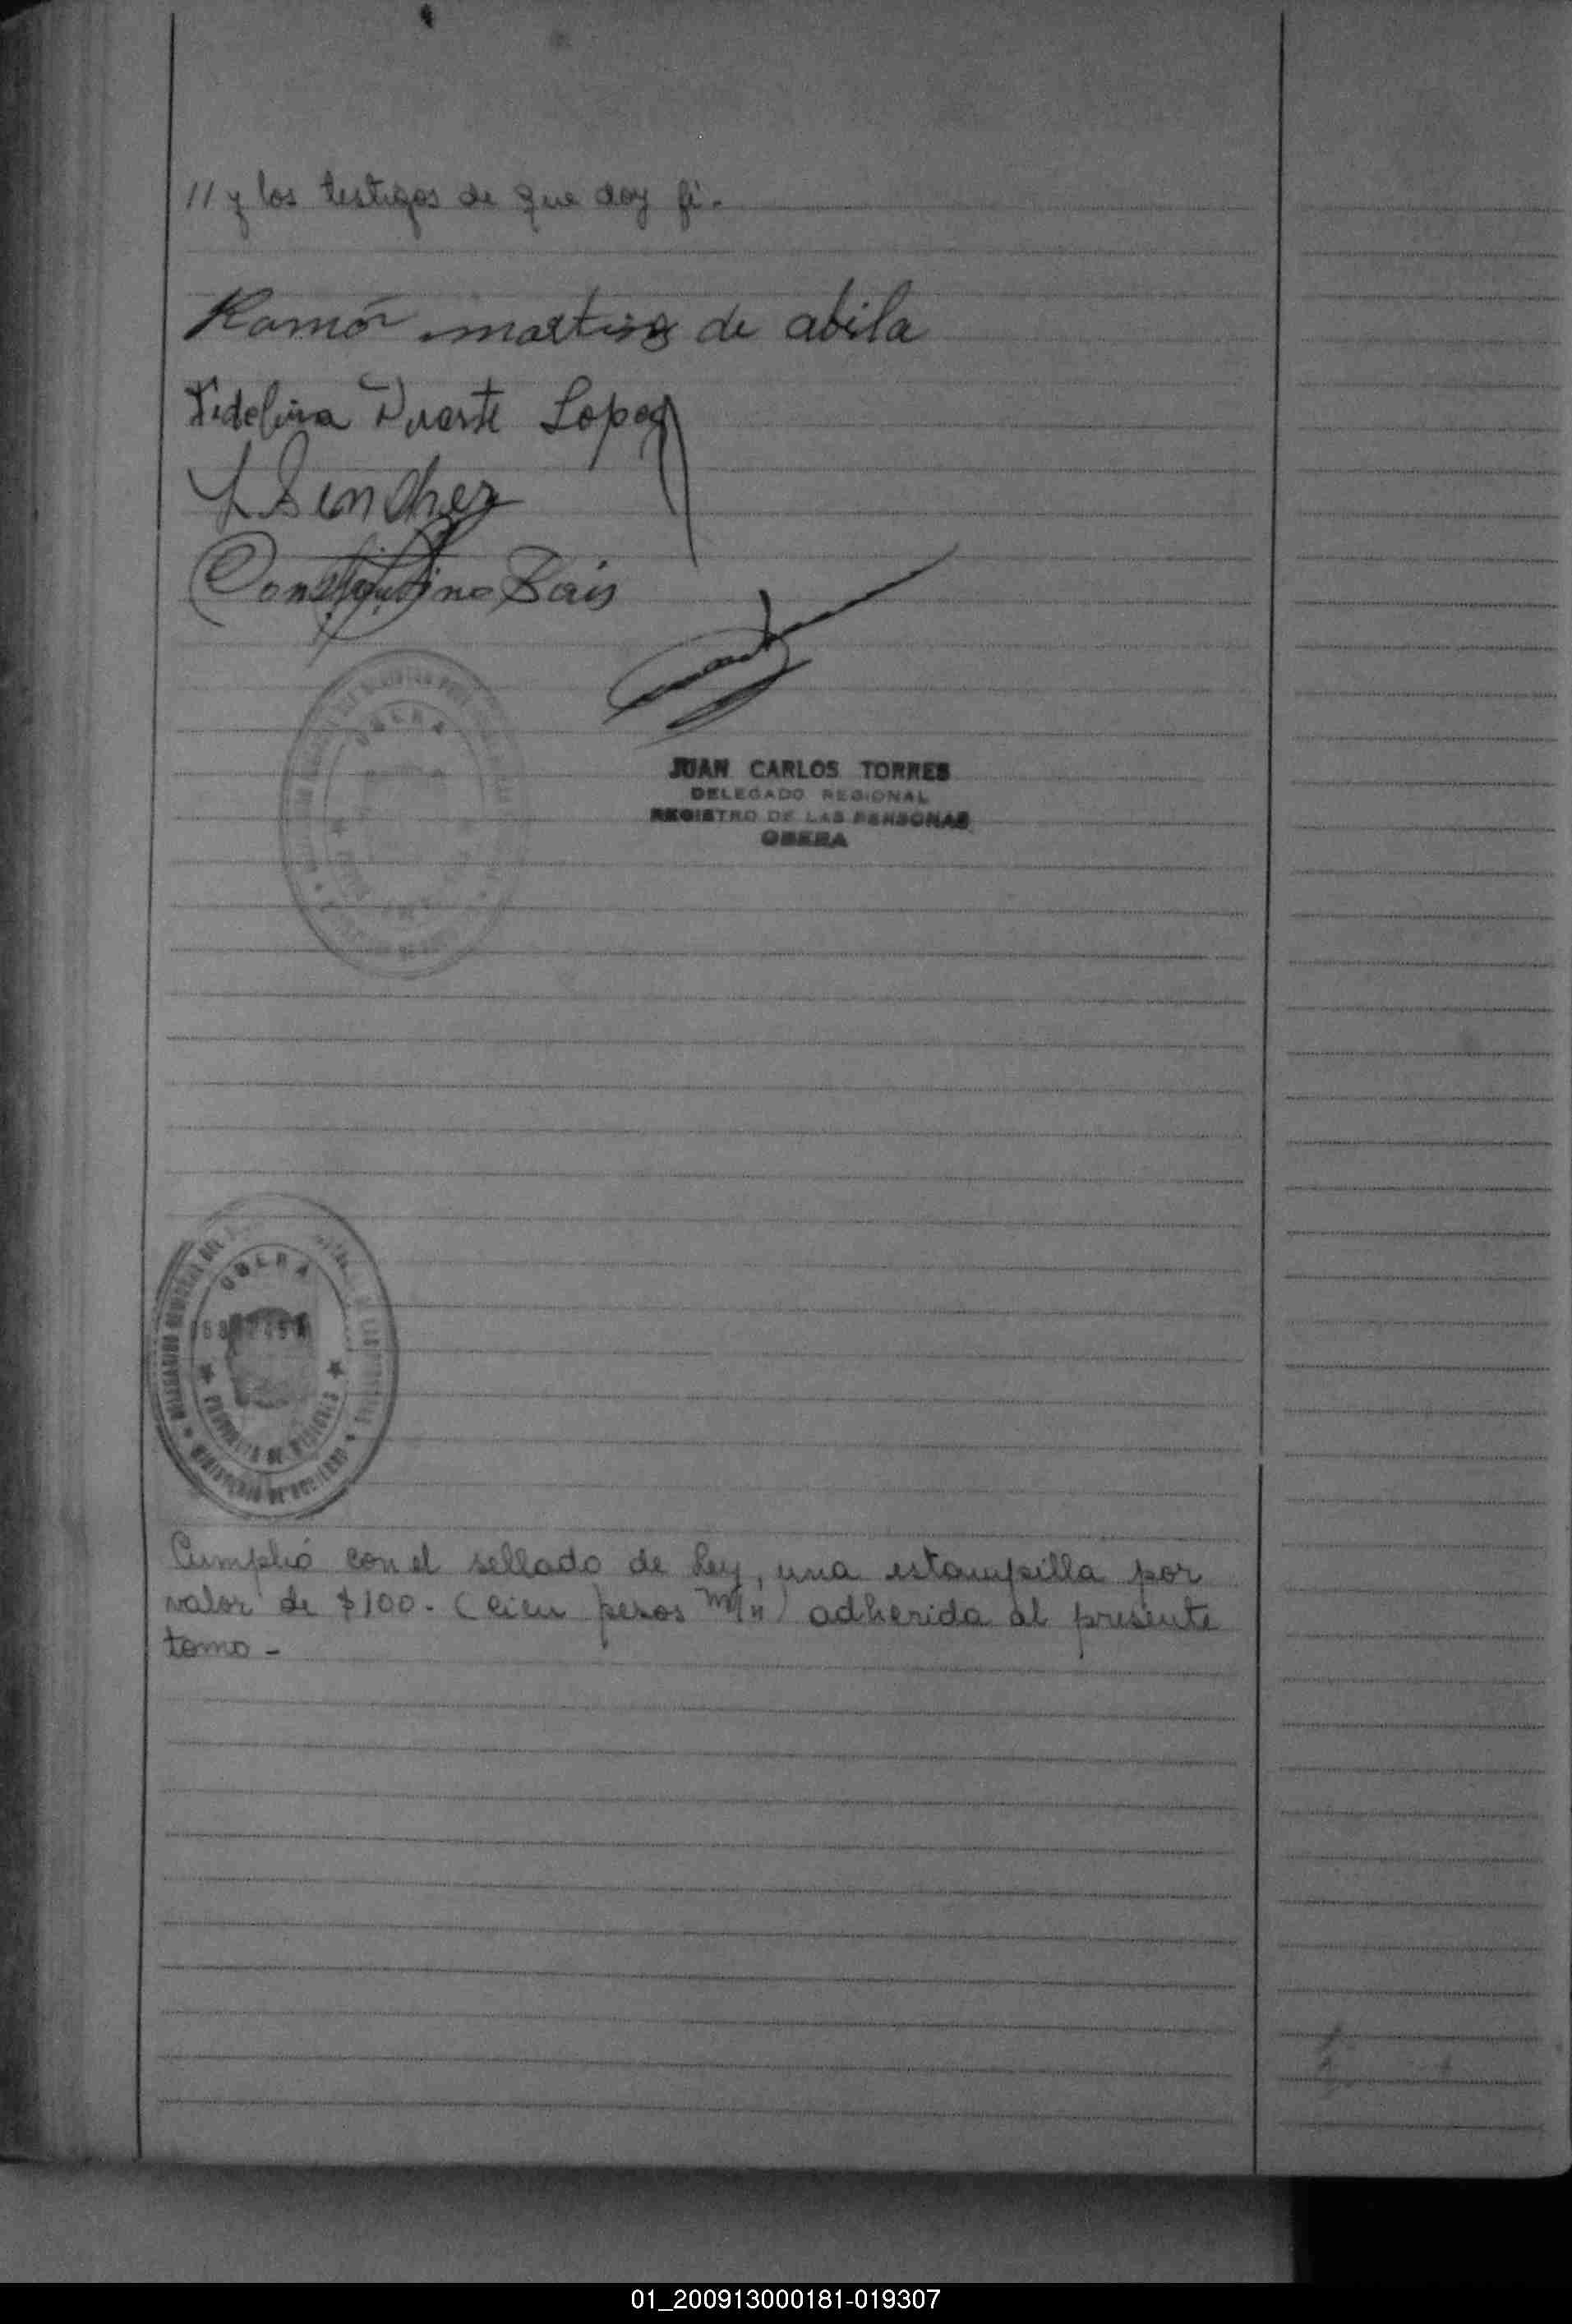 // y los testigos de que doy fé.
Ramón martins de abila
Fidelina Duarte Lopez
Constantino Pais
JUAN CARLOS TORRES
DELEGADO REGIONAL
REGISTRO DE LAS PERSONAS
OBERA
OBERA
OBERA
PROVINCIA DE MISIONES
MINISTERIO DE GOBIERNO
Cumplió con el sellado de Ley, una estampilla por
valor de $100.- (cien pesos m/n) adherida al presente
tomo -
01_200913000181-019307